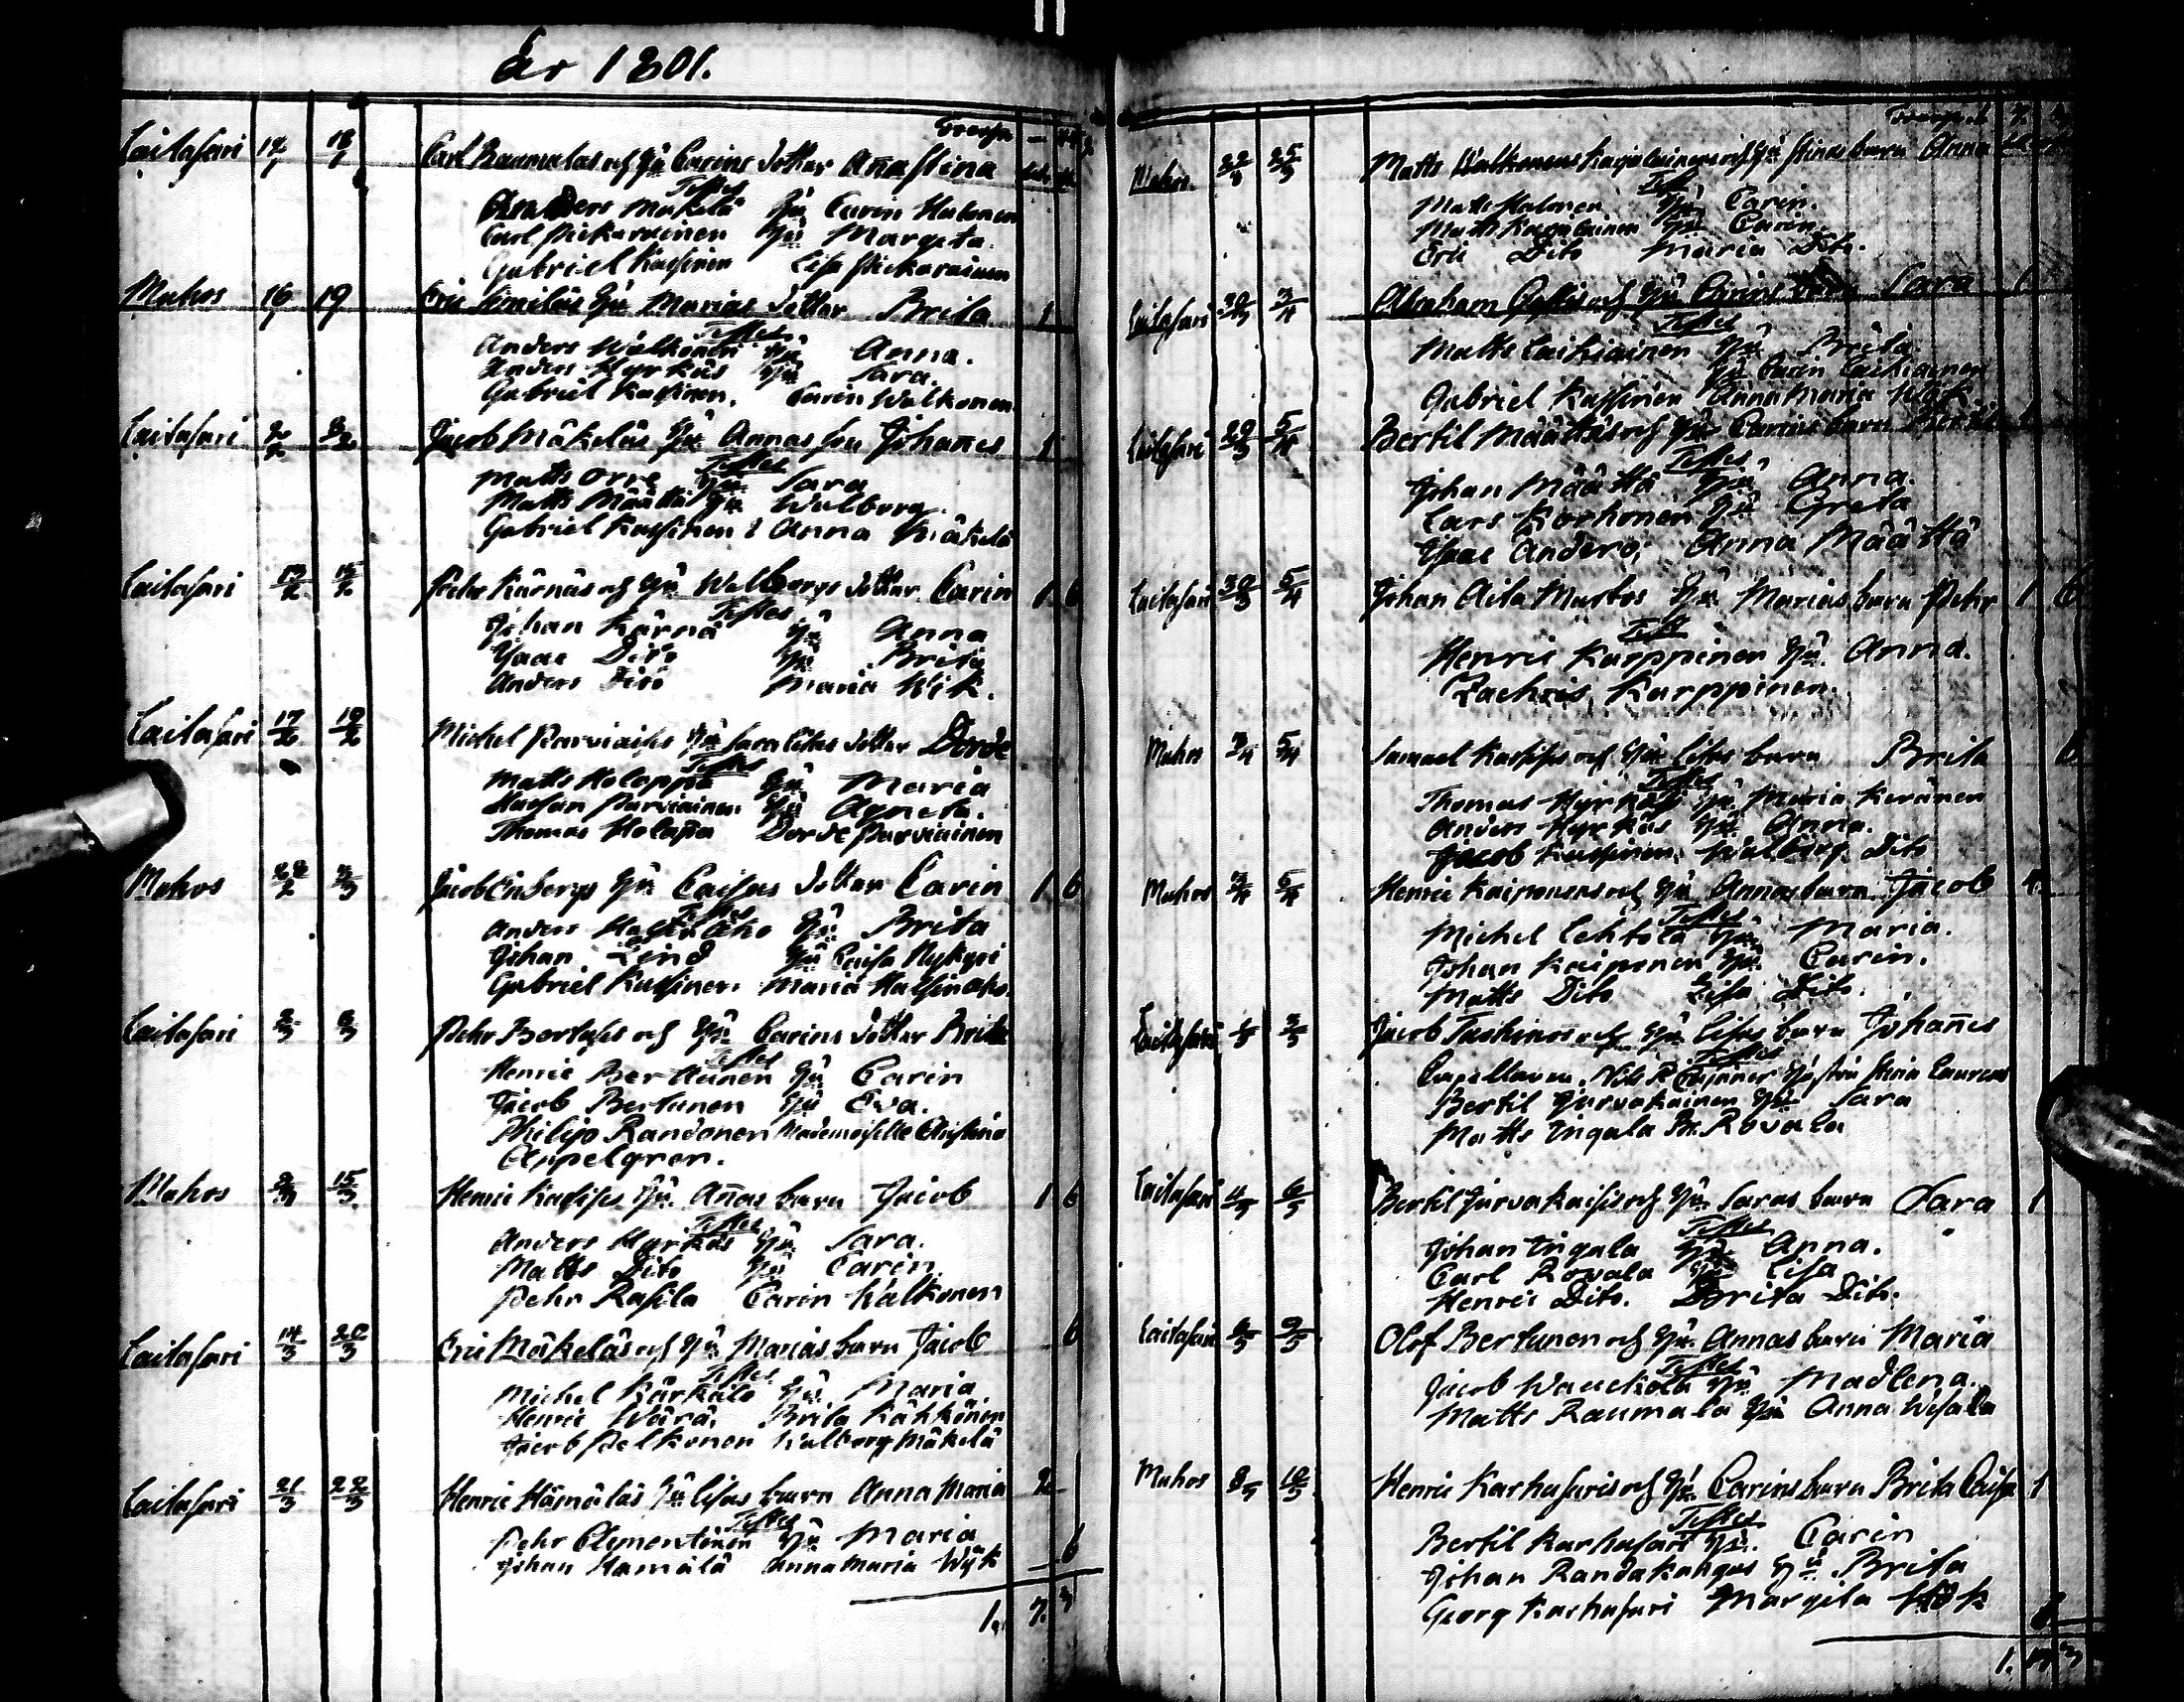 År 1801.
Transp.
Laitasari 17/1 18/1 Carl Raumalas och Hu Carins dotter Anna Stina
Testes
Anders Mäkelä Hu Carin Halonen
Carl Pickarainen Hu Margeta.
Gabriel Kassinen Lisa Pickarainen
Muhos 16 19 Eric Similäs Hu Marias dotter Brita 1
Testes
Anders Walkonen Hu Anna.
Anders Hyrkäs Hu Sara.
Gabriel Kassinen. Carin Walkonen
Laitasari 2/2 8/2 Jacob Mäkeläs Hu Annas son Johañes 1
Testes
Matts Orre Hu Sara
Matts Määttä Hu Walborg.
Gabriel Kassinen & Anna Mäkelä
Laitasari 13/2 15/2 Pehr Kärnäs och Hu Walborgs dotter Carin 1 6
Testes
Johan Kärnä Hu Anna
Isaac Dito Hu Brita
Anders Dito Maria Wik.
Laitasari 17/2 19/2 Michel Parviaises Hu Sara Lisas dotter Dorde
Testes
Matts Holappa Hu Maria
Staffan Parviainen Hu Agneta.
Thomas Holapa Dorde Parviainen
Muhos 28/2 3/3 Jacob Enbergs Hu Caisas dotter Carin 1 6
Testes
Anders Halsinaho Hu Brita
Johan Lind Hu Caisa Nykyri
Gabriel Kassinen. Maria Halsinaho.
Laitasari 3/3 8/3 Pehr Bertuses och Hu Carins dotter Brita
Testes
Henric Bertunen Hu Carin
Jacob Bertunen Hu Eva.
Philip Randonen Mademoiselle Christina
Appelgren.
Muhos 9/3 15/3 Henric Kassises Hu Añas barn Jacob 1 6
Testes
Anders Hyrkäs Hu Sara.
Matts Dito Hu Carin.
Pehr Rasila Carin Walkonen
Laitasari 14/3 20/3 Eric Mäkeläs och Hu Marias barn Jacob 6
Testes
Michel Kärkälä Hu Maria
Henric Wärä. Brita Kähkönen
Jacob Pelkonen Walborg Mäkelä
Laitasari 21/3 22/3 Henric Hämäläs Hu Lisas barn Anna Maria 2
Testes
Pehr Clementinen Hu Maria
Johan Hämälä Anna Maria Wijk 6
1. 7. 3
Transport
Muhos. 22/3 25/3 Matts Walkonens Hu Stinas barn Anna
Test
Matts Halonen Hu Carin.
Matts Karjalainen Hu Carin.
Eric Dito Maria Dito.
Laitasari 30/3 3/4 Abraham och Hu Carins barn Sara 1
Testes
Matts Laikiainen Hu Brita.
Hu Carin Laikiainen
Gabriel Kassinen Anna Maria Wök
Laitasari 29/3 5/4 Bertil Määttäs och Hu Carins barn Bertil 1
Testes
Johan Määttä Hu Anna.
Lars Korhonen Hu Greta
Isaac Anders. Anna Määttä
Laitasari 30/3 5/4 Johan Aita Murtos Hu Marias barn Pehr 1 6
Test
Henric Karppinen Hu. Anna.
Zachris Karppinen.
Muhos 3/4 5/4 Samuel Kassises och Hu Lisas barn Brita 6
Testes
Thomas Hyrkäs Hu Maria Keränen
Anders Hyrkäs Hu Anna.
Jacob Kassinen Walborg Dito
Muhos 3/4 5/4 Henric Kaiponens och Hu Annas barn Jacob 4.
Testes
Michel Lehtola Hu Maria.
Johan Kaiponen Hu Carin.
Matts Dito Lisa Dito.
Laitasari 1/5 3/5 Jacob Tuskinos och Hu Lisas barn Johañes
Testes
Capellanen Nils R. Hustru Stina Laurens
Bertil Jurvakainen Hu Sara
Matts Ingala Br. Rovala
Laitasari 4/5 6/5 Bertil Jurvakaises och Hu Saras barn Sara 1
Testes
Johan Ingala Hu Anna.
Carl Rovala Hu Lisa
Henric Dito. Brita Dito.
Laitasari 6/5 9/5 Olof Bertunen och Hu Annas barn Maria
Testes
Jacob Wauckola Hu Madlena.
Matts Raumala Hu Anna Wesala
Muhos 8/5 10/5 Henric Karhusaris och Hu Carins barn Brita Caisa 1
Testes
Bertil Karhusari Hu. Carin
Johan Randakangas Hu Brita
Georg Karhusari Margeta Hök